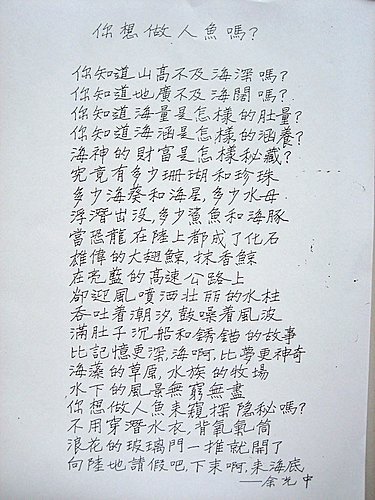 你想做人魚嗎？
你知道山高不及海深嗎？
你知道地廣不及海闊嗎？
你知道海量是怎樣的肚量？
你知道海涵是怎樣的涵養？
海神的財富是怎樣秘藏？
究竟有多少珊瑚和珍珠
多少海葵和海星，多少水母
浮潛出沒，多少鯊魚和海豚
當恐龍在陸上都成了化石
雄偉的大翅鯨，抹香鯨
在亮藍的高速公路上
卻迎風噴洒壯麗的水柱
吞吐着潮汐，鼓噪着風波
滿肚子沉船和銹錨的故事
比記憶更深，海啊，比夢更神奇
海藻的草原，水族的牧場
水下的風景無窮無盡
你想做人魚來窺探隱秘嗎？
不用穿潛水衣，背氧氣筒
浪花的玻璃門一推就開了
向陸地請假吧，下來啊，來海底
——余光中